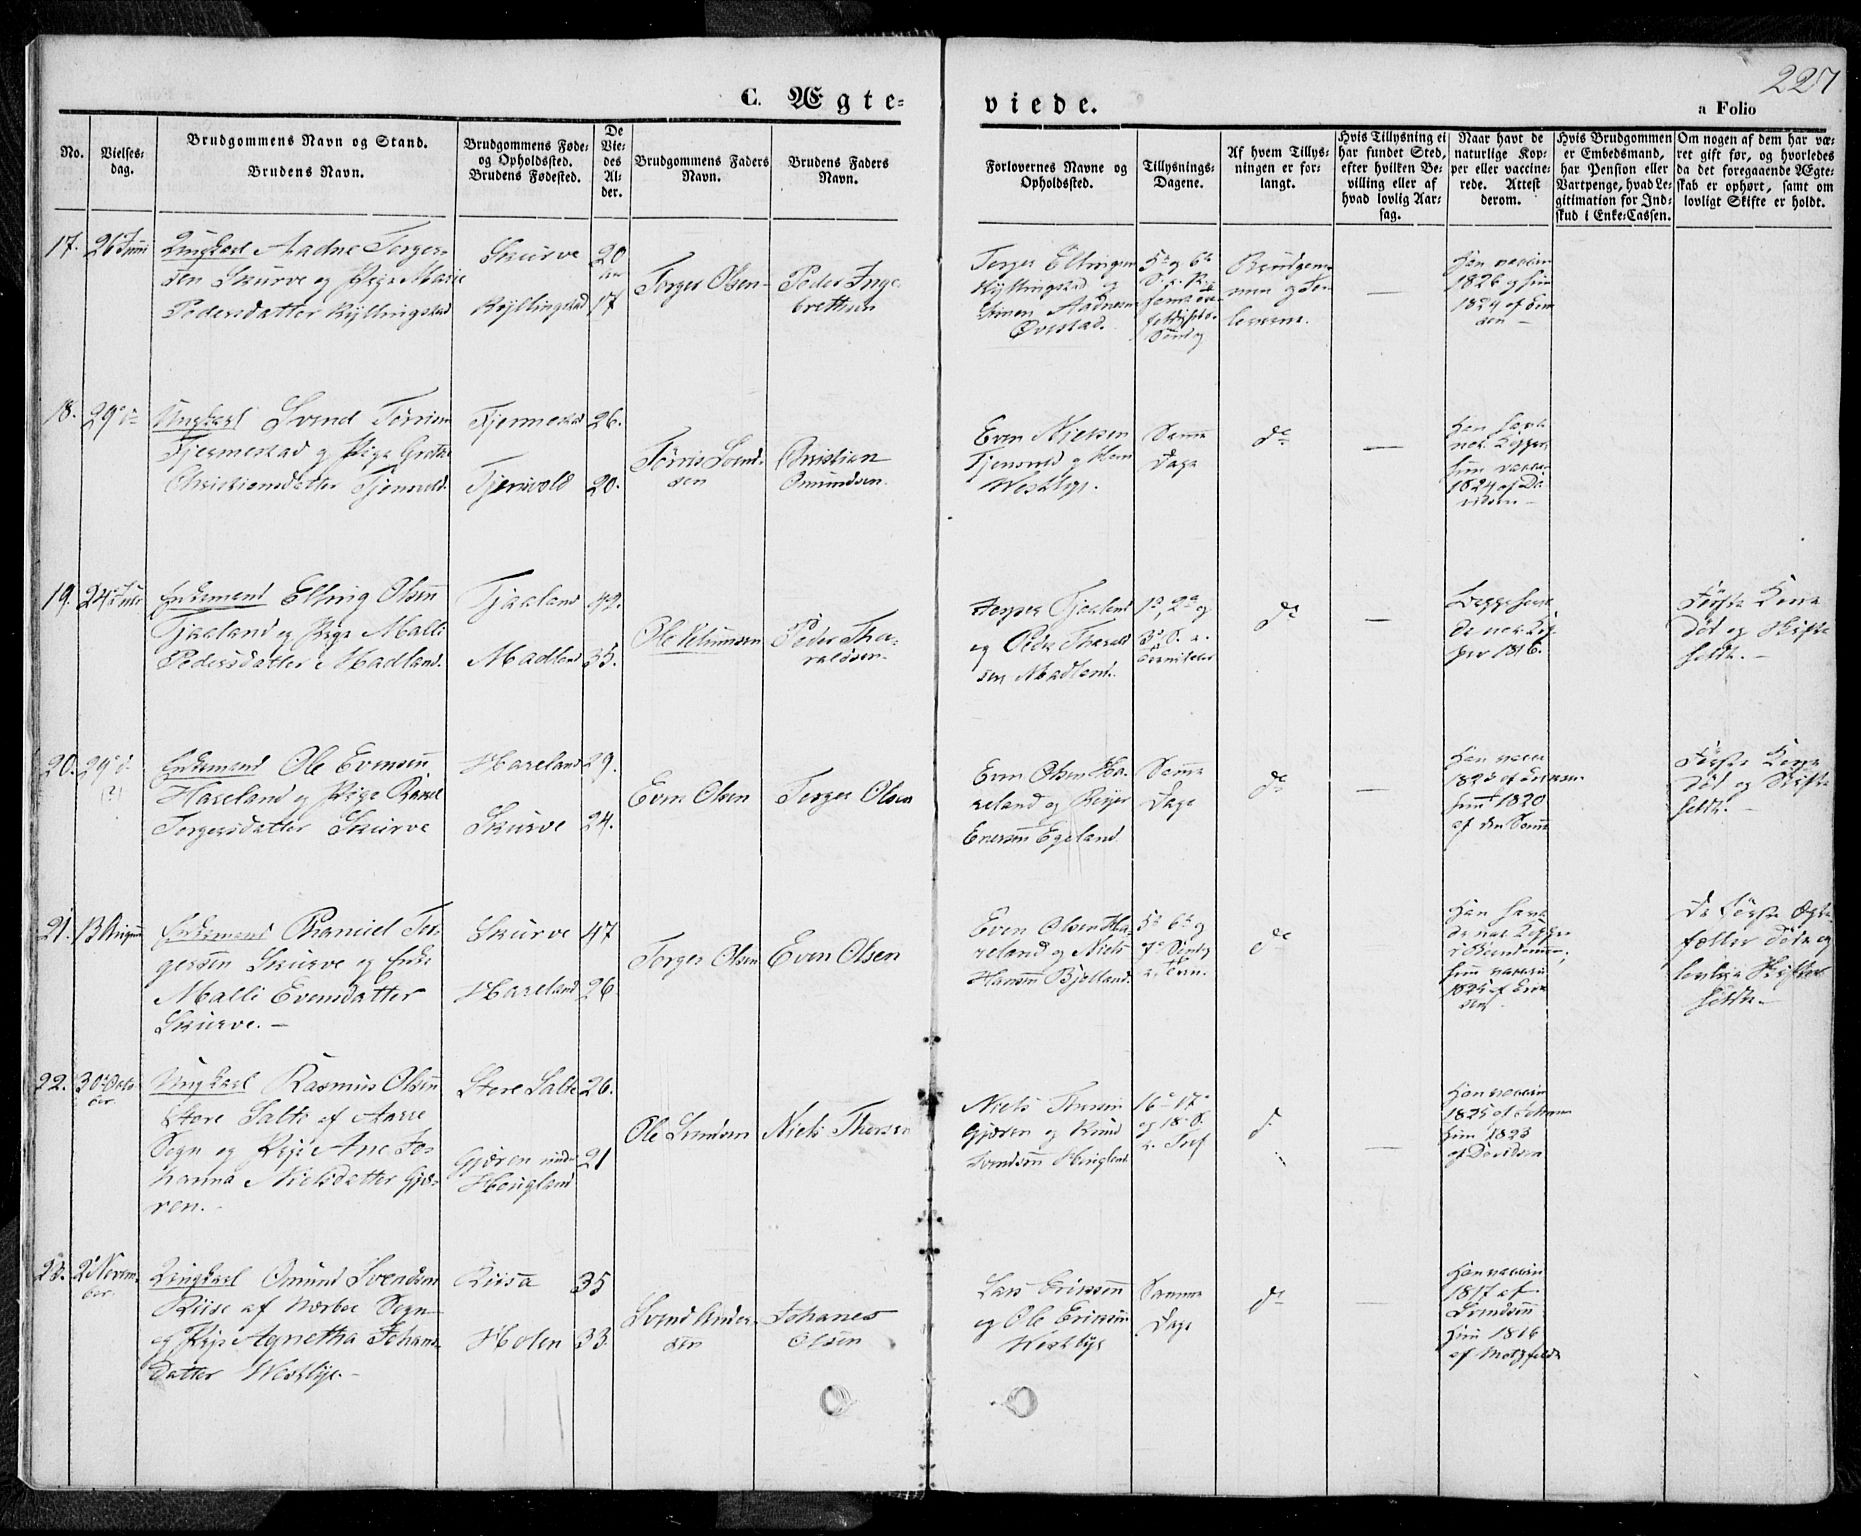 227
C. Ægte-
viede.
a Folio
No.
Vielses-
dag.
Brudgommens Navn og Stand.
Brudens Navn.
Brudgommens Føde-
og Opholdssted.
Brudens Fødested.
De
Vie-
des
Al-
der.
Brudgommens Faders
Navn.
Brudens Faders
Navn.
Forlovernes Navne og
Opholdssted.
Tillysnings-
Dagene.
Af hvem Tillys-
ningen er for-
langt.
Hvis Tillysning ei
har fundet Sted,
efter hvilken Be-
villing eller af
hvad lovlig Aar-
sag.
Naar havt de
naturlige Kop-
per eller vaccine-
rede. Attest
derom.
Hvis Brudgommen
er Embedsmand,
har Pension eller
Vartpenge, hvad Le-
gitimation for Ind-
skud i Enke-Cassen.
Om nogen af dem har væ-
ret gift før, og hvorledes
da det foregaaende Ægte-
skab er ophørt, samt om
lovligt Skifte er holdt.
17.
26 Juni
Ungkarl Aadne Torger-
sen Skurve og Pige Marie
Pedersdatter Kyllingstad
Skurve
Kyllingstad
20
17
Torger Olsen
Peder Inge-
brethsen
Torger
Kyllingstad og
Simon Aadnesen
Øvestad.
5te og 6te
Brudgom-
men og For-
loverne.
Han vaccin
1826 og hun
1824 af
18.
29 de
Ungkarl Svend Tørrisen
Fjermestad og Pige Grethe
Christiansdatter Tjensvold
Fjermestad
Tjensvold
26.
20.
Tørris Svend-
sen
Christian
Omundsen.
Even Nielsen
Tjensvold og
Westbye.
Samme
Dage
do
Han havt
nat. Kopper,
hun vaccin
1824 af Da-
vidsen
19.
24 Juli
Enkemand Elling Olsen
Tjaaland og Pige Malli
Pedersdatter Madland.
Tjaaland
Madland
42.
35.
Ole
Peder Tha-
raldsen.
Tjaaland
og Peder Tharald-
sen Madland.
1s, 2s og
3s S. e.
Trinitatis
do
Begge havt
de nat. Kop-
per 1816.
Første Kone
død og Skifte
holdt.
20.
29
Enkemand Ole Evensen
Hareland og Pige
Torgersdatter Skurve
Hareland
Skurve
29.
24.
Even Olsen
Torger Olsen
Even Olsen Ha-
reland og
Egeland
Samme
Dage
do
Han vacc
hun 1820
af den Samme
Første Kone
død og Skifte
holdt.
21.
13 August
Enkemand Tor-
gersen Skurve og Enke
Malli Evensdatter
Skurve.
Skurve
Hareland
47
26
Torger Olsen
Even Olsen
Even Olsen Ha-
reland og Niels
Hansen Bjelland.
5te 6te og
7de Søndag
e. Trin.
do
Han havt
de nat. Kopper
i Barndommen;
hun vaccin
1825 af
De første Ægte-
fæller døde og
lovlige Skifter
holdte.
22.
30 Octo-
ber.
Ungkarl Rasmus Olsen
Store Salte af Aarre
Sogn og Pige Ane Jo-
hanna Nielsdatter Gjæ-
ren.
Store Salte
Gjæren under
Hougland
26.
21
Ole Svendsen
Niels Thorsen
Niels Thorsen
Gjæren og Knud
Svendsen Hougland
16de 17de
og 18de S.
e. Tref
do
Han vaccin
1825 af
hun 1823
af Davidsen
23.
2 Novem-
ber.
Ungkarl Omund Svendsen
Riise af Nærboe Sogn
og Pige Agnetha Johans-
datter Westbye.
Riisa
Holen
35
33.
Svend Ander-
sen
Johanes
Olsen
Lars Ericksen
og Ole Ericksen
Westbye
Samme
Dage
do
Han vaccin
1817 af
Svendsen
hun 1816
af Motzfeldt